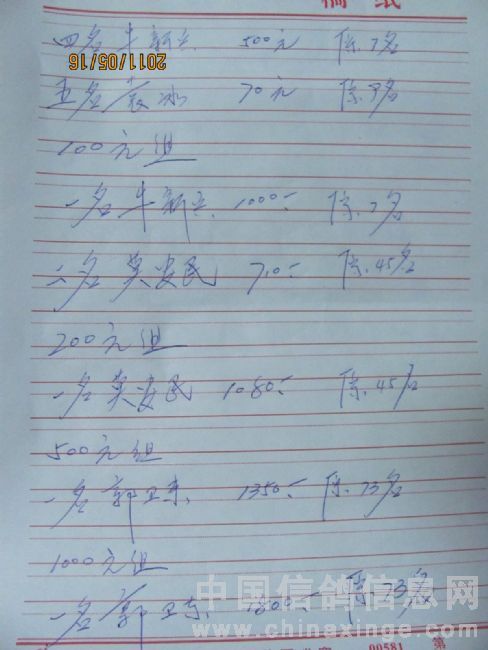 稿纸
四名牛新兵 500元 综7名
2011/05/16
五名袁冰 70元 综8名
100元组
一名牛新兵 1000元 综7名
二名吴安民 710元 综45名
200元组
一名吴安民 1080元 综45名
500元组
一名郭卫东 1350元 综73名
1000元组
一名郭卫东 1800元 综73名
中国信鸽信息网
www.chinaxinge.com
00581 第